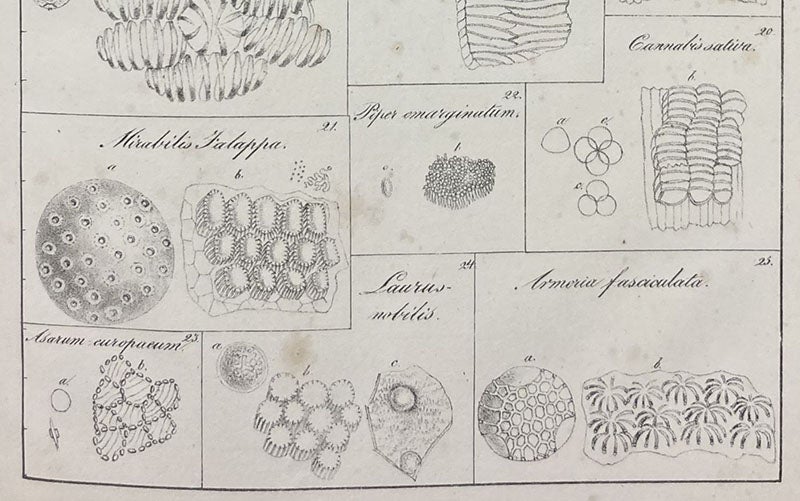 20.
Cannabis sativa.
a
c.
b.
c.
22.
Piper emarginatum.
a
b.
21.
Mirabilis Jalappa.
a
b.
23.
Asarum europaeum.
a.
b.
24
Laurus-
nobilis.
a
b.
c
25.
Armeria fasciculata.
a.
b.